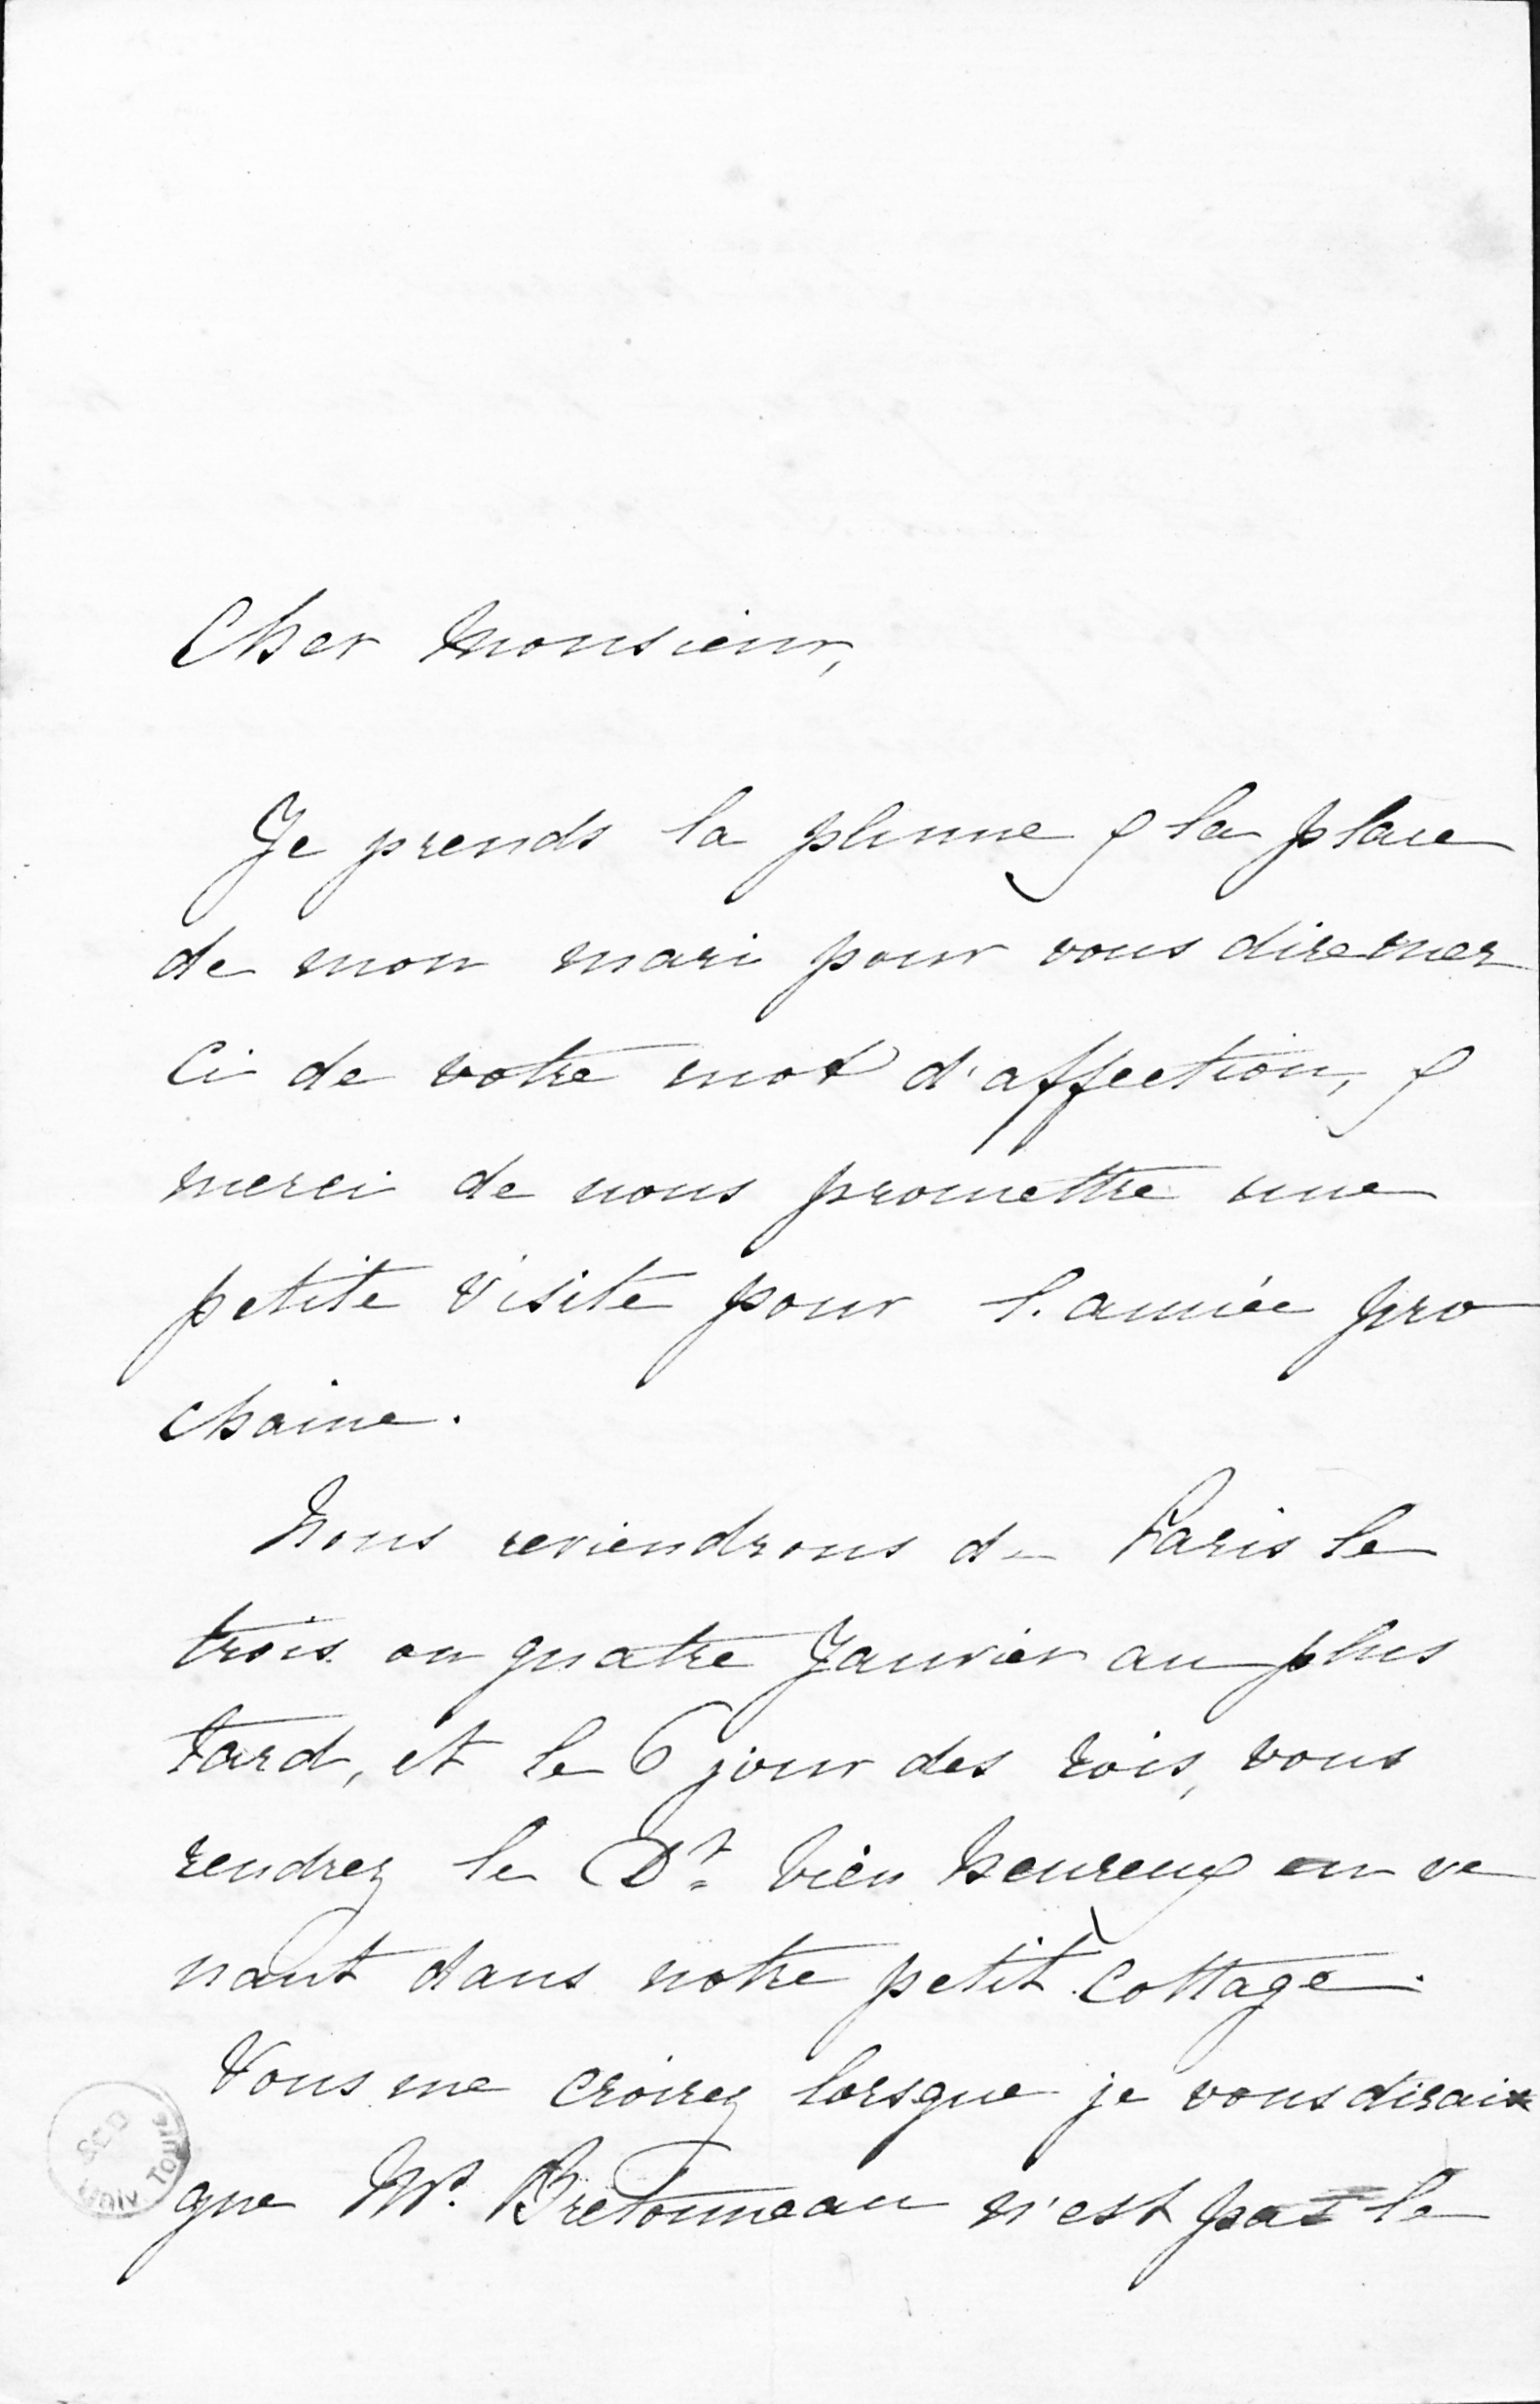 Cher Monsieur,
Je prends la plume & la place
de mon mari pour vous dire mer
ci de votre mot d'affection, &
merci de nous promettre une
petite visite pour l'année pro
chaine.
Nous reviendrons de Paris le
trois ou quatre Janvier au plus
tard, et le 6 jour des rois, vous
rendrez le Dr bien heureux en ve
nant dans notre petit cottage.
Vous me croirez lorsque je vous dirai
que Mr. Bretonneau n'est pas le
SCD
Univ Tours